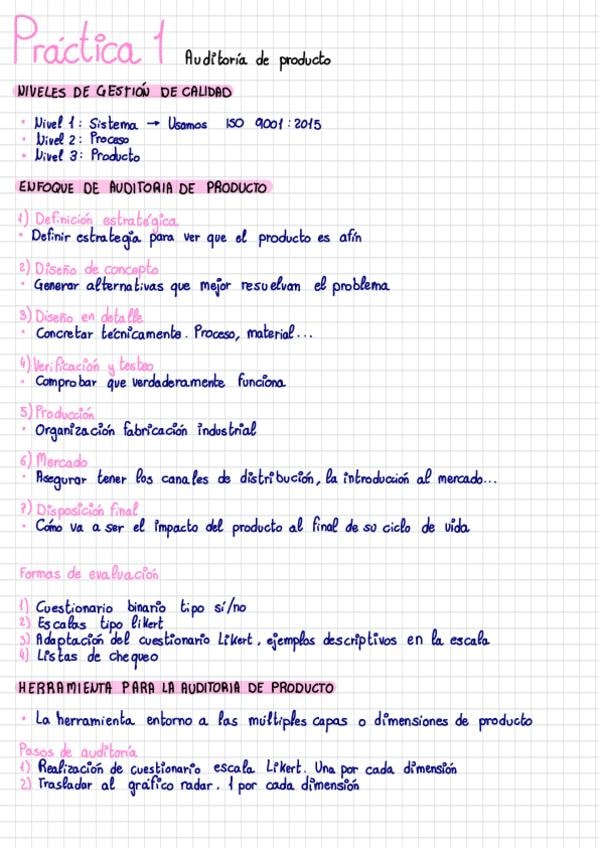 Práctica 1 Auditoría de producto
NIVELES DE GESTIÓN DE CALIDAD
· Nivel 1: Sistema → Usamos ISO 9001:2015
· Nivel 2: Proceso
· Nivel 3: Producto
ENFOQUE DE AUDITORIA DE PRODUCTO
1) Definición estratégica
· Definir estrategia para ver que el producto es afín
2) Diseño de concepto
· Generar alternativas que mejor resuelvan el problema
3) Diseño en detalle
· Concretar técnicamente. Proceso, material...
4) Verificación y testeo
· Comprobar que verdaderamente funciona
5) Producción
· Organización fabricación industrial
6) Mercado
· Asegurar tener los canales de distribución, la introducción al mercado...
7) Disposición final
· Cómo va a ser el impacto del producto al final de su ciclo de vida
Formas de evaluación
1) Cuestionario binario tipo sí/no
2) Escalas tipo likert
3) Adaptación del cuestionario Likert, ejemplos descriptivos en la escala
4) Listas de chequeo
HERRAMIENTA PARA LA AUDITORIA DE PRODUCTO
· La herramienta entorno a las múltiples capas o dimensiones de producto
Pasos de auditoría
1) Realización de cuestionario escala Likert. Una por cada dimensión
2) Trasladar al gráfico radar. 1 por cada dimensión